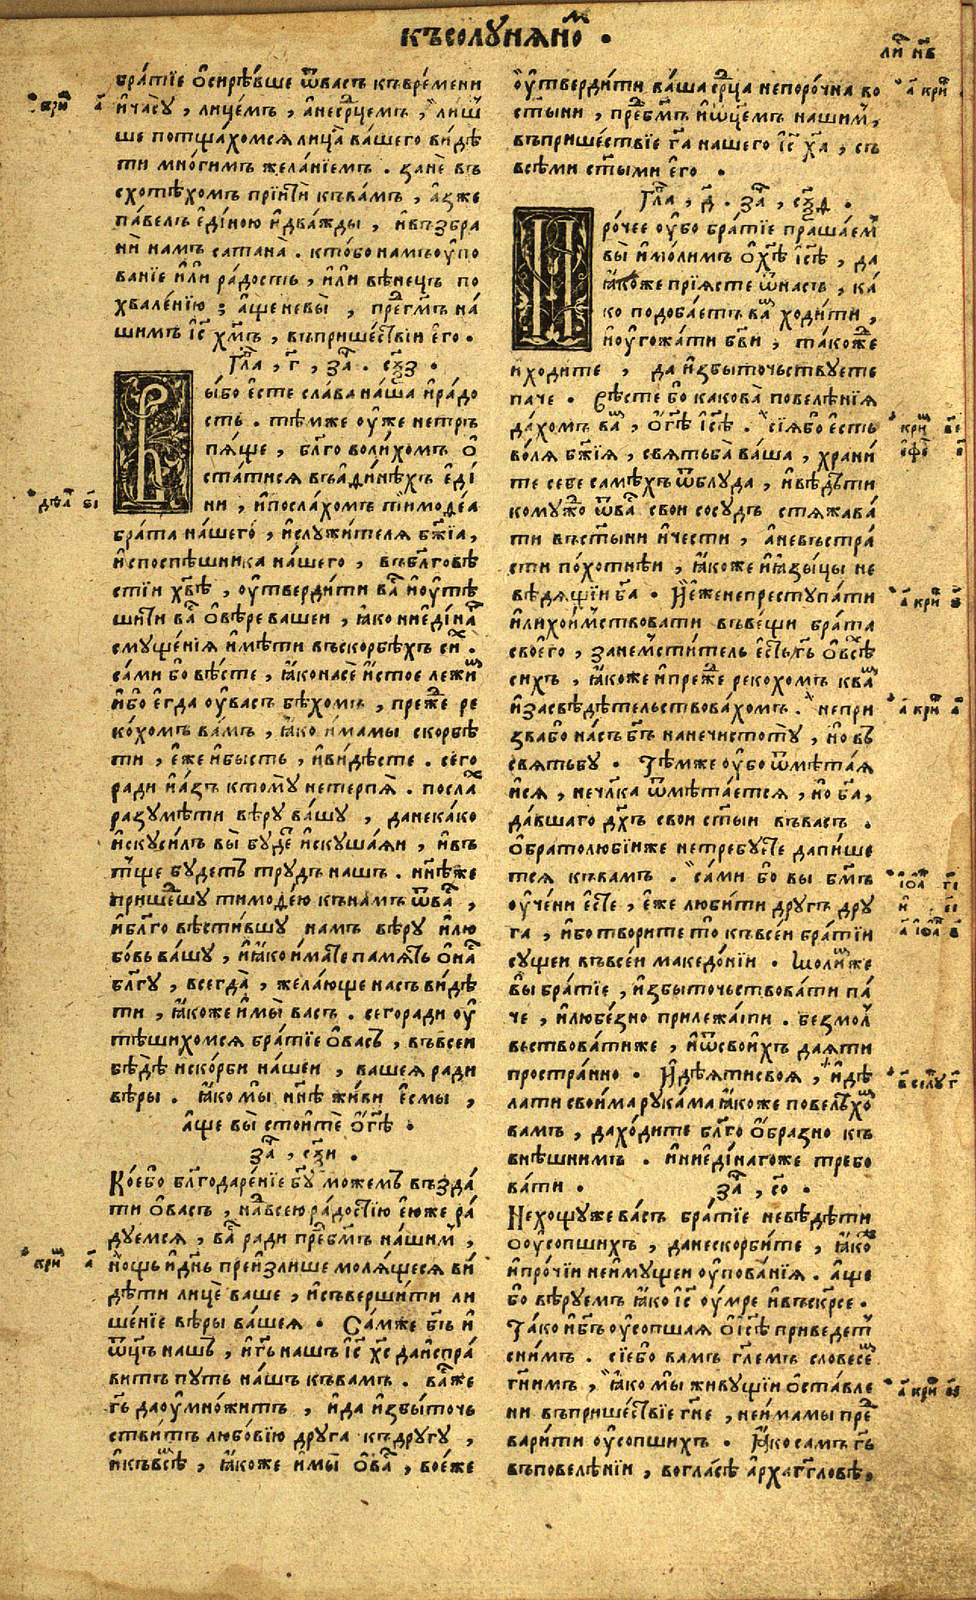 къ солунѧномъ .
ли҃ н҃в
братїе ѻ҆сирѣвше ѿвасъ къвре́мени
ичасу , лице́мъ , а҆несрⷣцемъ , лиш
ше потща́хомсѧ лица̀ ва́шего ви́дѣ
ти мно́гимъ жела́нїемъ . занѐ въ
схотѣхомъ прїитѝ къва́мъ , а҆зже
па́велъ є҆ди́ною и҆два́жды , ивъзбра
нѝ намъ сатана̀ . кто́бо намъ оу҆по
ванїе и҆лѝ ра́дость , и҆лѝ вѣне́цъ по
хвале́нїю ; а҆щеневы̀ , пре́дгмъ на́
шимъ і҆с҃ хм҃ъ , въприше́ствїи є҆го̀ .
гл҃а , г҃ , за҃ . сѯ҃з .
Вы́бо є҆сте сла́ва на́ша и҆ра́до
сть . тѣ́мже оу҆же нетръ
пѧ́ще , бл҃гово́лихомъ ѻ҆
ста́тисѧ въа҆ди́нѣхъ є҆ді́
ни , и҆посла́хомъ тимоѳе́а
бра́та на́шего , и҆служи́телѧ бж҃їа ,
и҆споспѣ́шника на́шего , въбл҃говѣ
стїи хв҃ѣ , оу҆тверди́ти ва́съ и҆оу҆тѣ
ши́ти ва́съ ѻ҆вѣ́ре ва́шеи , ꙗ҆ко ниє҆ди́на
смуще́нїѧ и҆мѣ́ти въско́рбѣхъ си́х .
са́ми бо вѣ́сте , ꙗ҆конасѐ и҆стое лежи́м
и҆́бо є҆гда оу҆ва́съ бѣ́хомъ , пре́же ре
ко́хомъ ва́мъ , ꙗ҆ко и҆мамы скорбѣ
ти , є҆́же и҆бысть , и҆ви́дѣсте . сего̀
ради и҆а́зъ ктому̀ нетерпѧ̀ . посла́х
разумѣ́ти вѣ́ру ва́шу , данека́ко
и҆скуси́лъ вы̀ бу́де и҆скуша́ѧи , и҆въ
тще бу́детъ тру́дъ на́шъ . нн҃ѣже
прише́дшу тимоѳе́ю кна́мъ ѿва́съ ,
и҆бл҃го вѣсти́вшу намъ вѣ́ру и҆лю
бо́вь ва́шу , и҆ꙗ҆ко и҆мате па́мѧть ѻ҆на́съ
бл҃гу , всегда̀ , жела́юще насъ ви́дѣ
ти , ꙗ҆коже и҆мы̀ васъ . сегора́ди оу҆
тѣ́шихомсѧ бра́тїе ѻ҆ва́съ , въвсеи
бѣдѣ̀ и҆ско́рби на́шеи , ва́шеѧ ради
вѣ́ры . ꙗ҆ко мы̀ нн҃ѣ жи́ви є҆смы ,
а҆ще вы̀ стоитѐ ѻ҆г҃ѣ .
за҃ , сѯ҃и .
Ко́ебо бл҃годаре́нїе бг҃у можемъ възда́
ти ѻ҆ва́съ , навсею ра́достїю є҆юже ра́
дуемсѧ , ва́съ ради пре́дбг҃мъ на́шимъ ,
но́щь и҆дн҃ь преи́злише молѧ́щесѧ ви́
дѣти лицѐ ва́ше , и҆съверши́ти ли
ше́нїе вѣ́ры ва́шеѧ . Са́мже бг҃ъ и҆
ѿц҃ъ нашъ , и҆г҃ь на́шъ і҆с҃ х҃с даи҆спра́
витъ путь на́шъ къвамъ . ва́съже
г҃ь даоу҆мно́житъ , и҆да и҆збы́точь
стви́тъ любо́вїю друга къдругу ,
и҆къвсѣ́м , ꙗ҆коже и҆мы̀ ѻ҆ва́съ , во́еже
оу҆тверди́ти ва́ша срⷣца непоро́чна во
ст҃ы́ни , пре́дбг҃мъ и҆ѿц҃емъ на́шимъ ,
въприше́ствїе г҃а на́шего і҆с҃ х҃а , съ
всѣ́ми ст҃ы́ми є҆го̀ .
гл҃а , д҃ . за҃ , сѯ҃ѳ .
Про́чее оу҆бо бра́тїе пра́шаемъ
вы̀ и҆мо́лимъ ѻ҆хѣ҃ і҆с҃ѣ , да
ꙗ҆́коже прїѧ́сте ѿна́съ , ка́
ко подоба́етъ ва́мъ ходи́ти ,
и҆оу҆гожа́ти бг҃ви , та́коже
и҆ходите , да и҆збы́точьствуете
па́че . вѣ́сте бо какова̀ повелѣ́нїѧ
да́хомъ ва́мъ , ѻ҆г҃ѣ і҆с҃ѣ . сїѧ́бо є҆сть
во́лѧ бж҃їѧ , свѧтьба̀ ва́ша , храни́
те себе самѣ́хъ ѿблу́да , и҆вѣ́дѣти
кому́ждо ѿва́съ свои сосу́дъ стѧжава́
ти въст҃ы́ни и҆че́сти , а҆невъстра́
сти по́хотнѣи , ꙗ҆коже и҆ꙗ҆зы́цы не
вѣ́дѧщїи б҃га . И҆́еженепреступа́ти
и҆лихои́мствовати въве́щи бра́та
своего̀ , зане́мстѝтель є҆сть г҃ь ѻ҆всѣ́х
сихъ , ꙗ҆коже и҆пре́же реко́хомъ ква́мъ
и҆засвѣдѣ́тельствова́хомъ . непри
зва́бо на́съ бг҃ъ нанечистоту̀ , но въ
свѧтьбу . Тѣ́мже оу҆бо ѿмѣта́ѧ
и҆сѧ , нечл҃ка ѿмѣта́етсѧ , но б҃га ,
да́вшаго дх҃ъ свои ст҃ы́и въва́съ .
Ѻ҆братолю́бїиже нетре́буете дапи́ше
тсѧ къвамъ . са́ми бо вы бг҃мъ
оу҆че́ни є҆сте , є҆же люби́ти другъ дру
га , и҆́бо творите тѡ къвсе́и бра́тїи
сущеи въвсе́и македо́нїи . мо́лимже
вы̀ бра́тїе , и҆збы́точьствова́ти па́
че , и҆любе́зно прилежа́ти . безмо́л
вьствова́тиже , и҆ѡ҆свои́хъ даѧ́ти
простра́нно . И҆дѣѧтисвоѧ , и҆дѣ́
лати свои́ма рука́ма ꙗ҆коже повелѣ́хом
вамъ , дахо́дите бл҃го ѻ҆́бразно къ
внѣ́шнимъ . и҆ниє҆ди́нагоже требо
ва́ти . за҃ , со҃ .
Нехощу́же ва́съ бра́тїе невѣ́дѣти
ооу҆со́пшихъ , данескорби́те , ꙗ҆коже
и҆про́чїи неи҆мущеи оу҆пова́нїѧ . а҆ще
бо вѣ́руемъ ꙗ҆ко і҆с҃ оу҆мре и҆въскр҃се .
Та́ко и҆бг҃ъ оу҆со́пшаѧ ѻ҆і҆с҃ѣ приведе́тъ
сни́мъ . сїебо вамъ гл҃емъ слове́сем
гн҃имъ , ꙗ҆ко мы̀ живу́щїи ѻ҆ста́вле
ни въприше́ствїе гн҃е , неи́мамы пред
вари́ти оу҆со́пшихъ . Ꙗ҆ко самъ г҃ь
въповелѣ́нїи , вогла́сѣ а҆рха́гг҃ловѣ ,